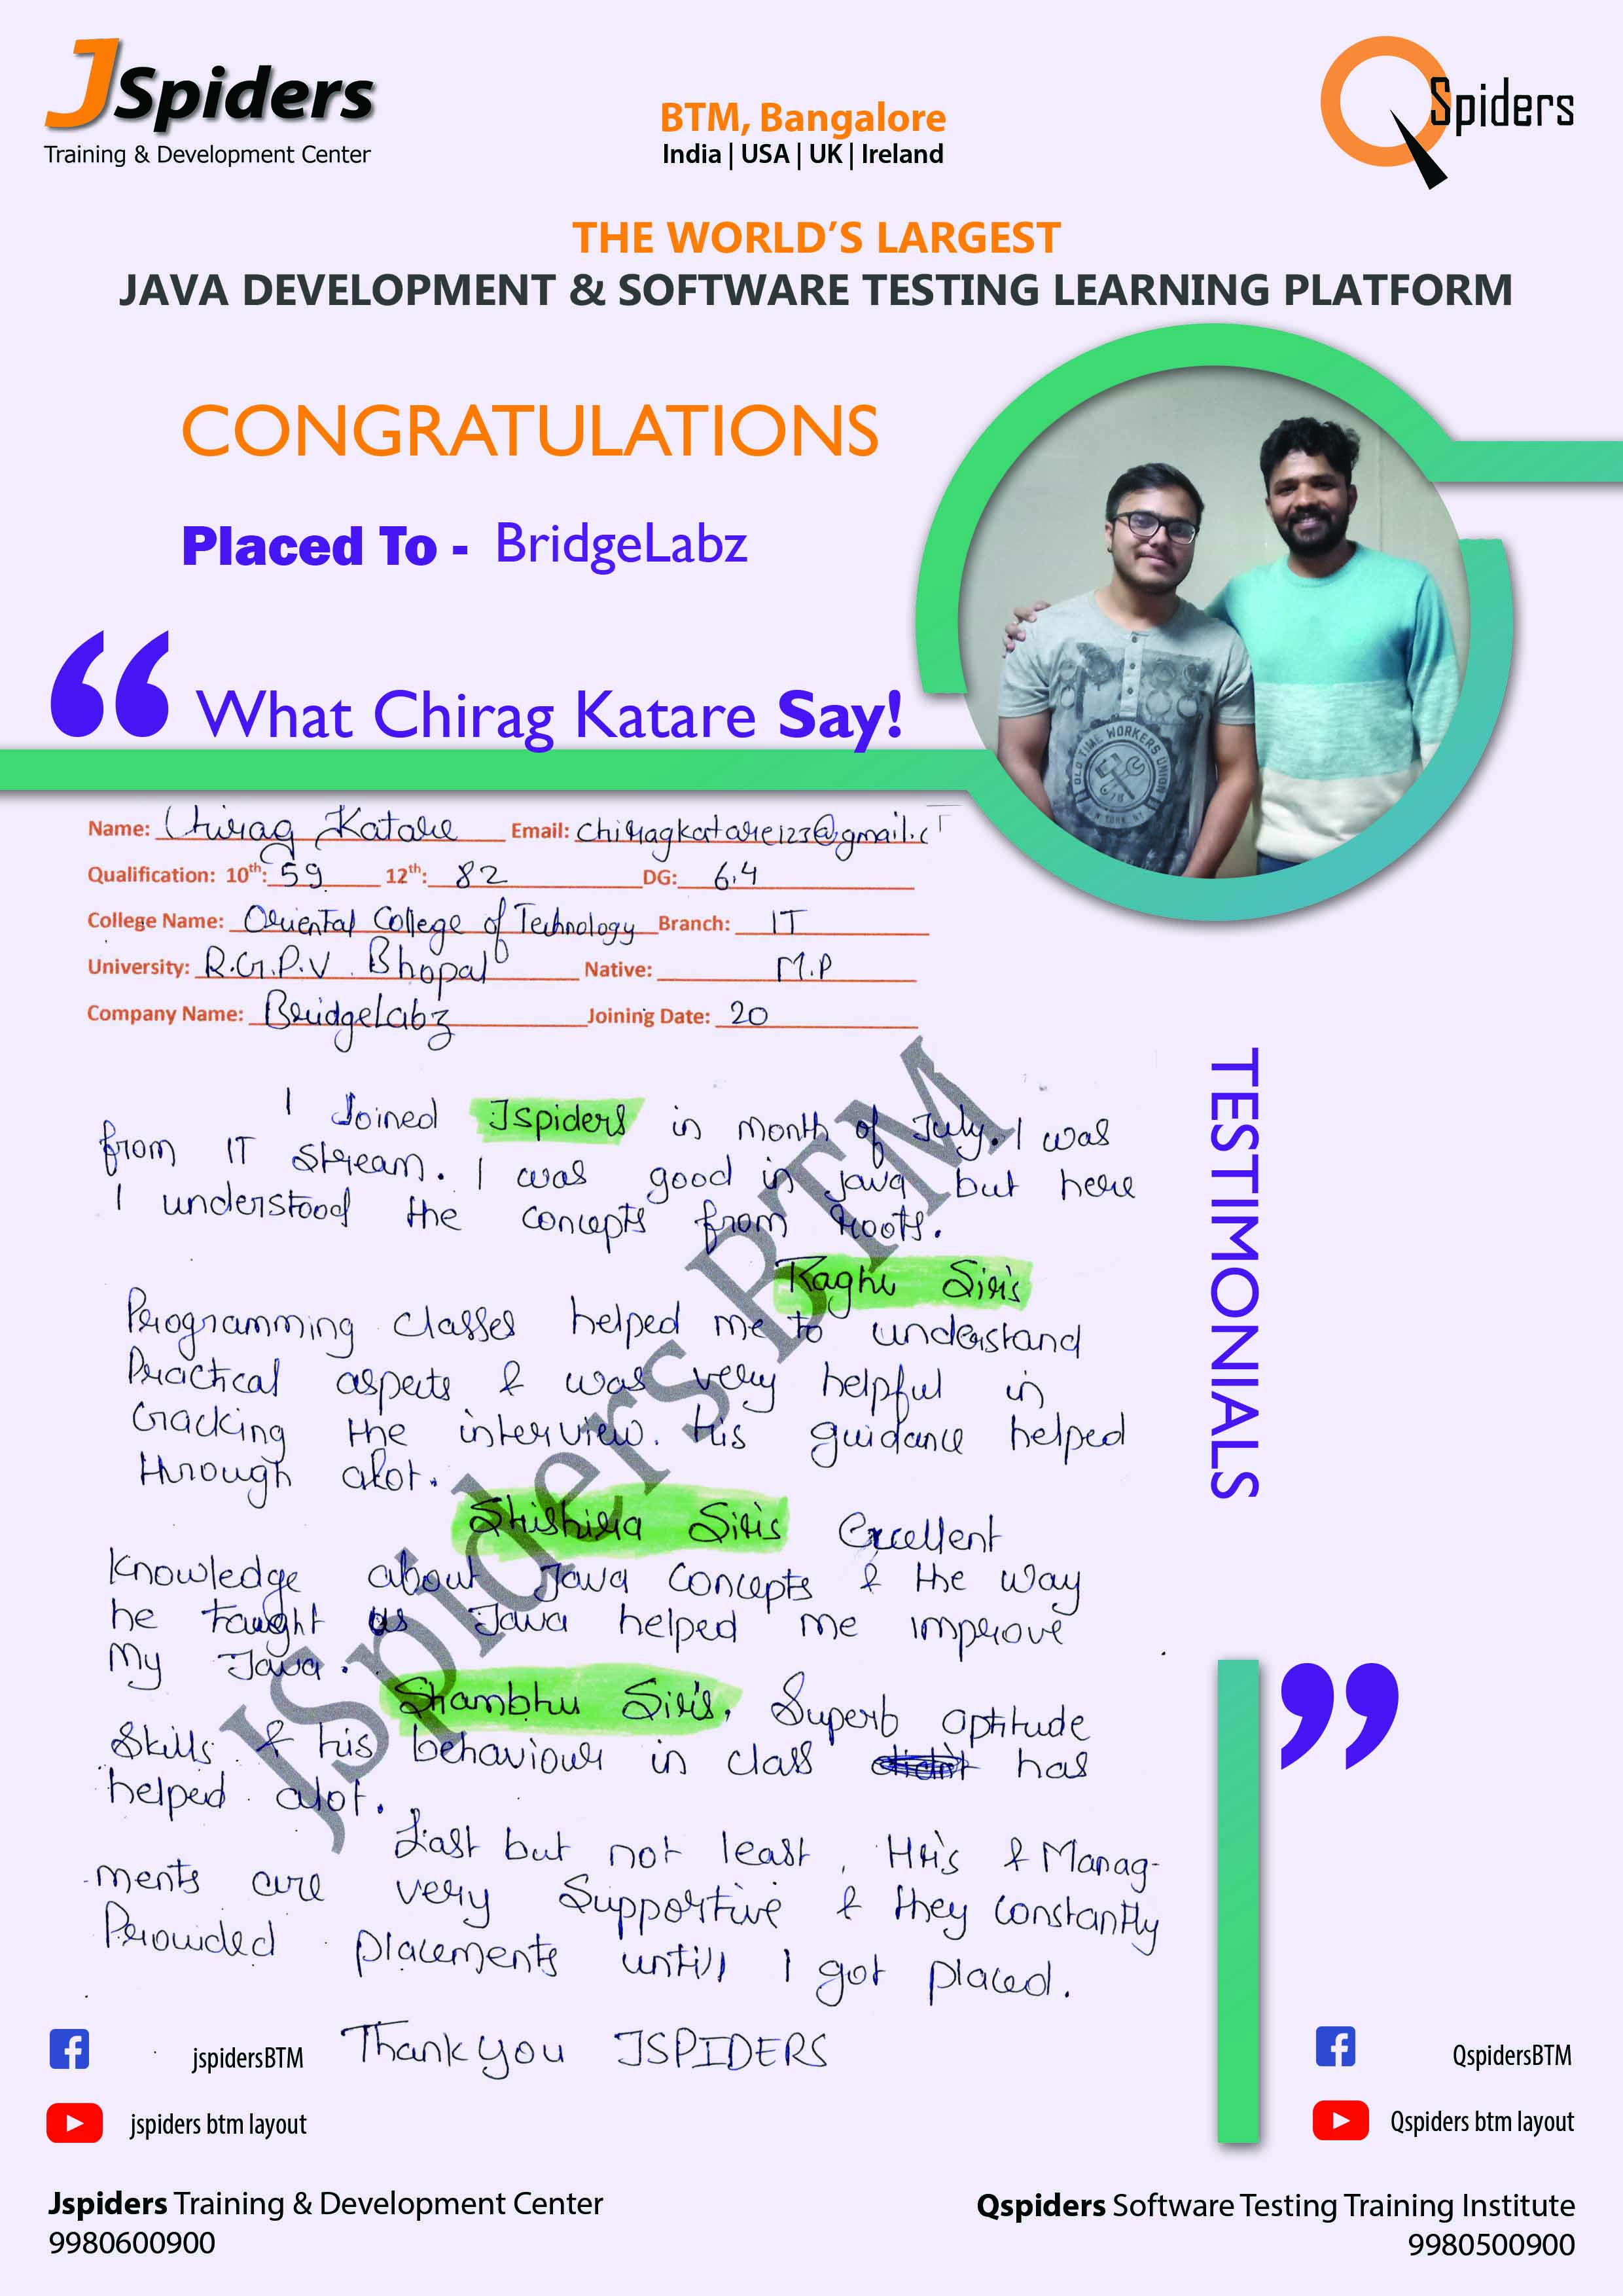 JSpiders
Training & Development Center
BTM, Bangalore
India | USA | UK | Ireland
QSpiders
THE WORLD'S LARGEST
JAVA DEVELOPMENT & SOFTWARE TESTING LEARNING PLATFORM
CONGRATULATIONS
Placed To - BridgeLabz
“ What Chirag Katare Say!
OLD TIME WORKERS UNION
Name: Chirag Katare Email: chiragkatare123@gmail.c
Qualification: 10th: 59 12th: 82 DG: 6.4
College Name: Oriental College of Technology Branch: IT
University: R.G.P.V. Bhopal Native: M.P
Company Name: BridgeLabz Joining Date: 20
I Joined Jspiders in month of July. I was
from IT stream. I was good in java but here
I understood the concepts from roots.
Raghu Sir's
Programming classes helped me to understand
Practical aspects & was very helpful in
Cracking the interview. His guidance helped
through alot.
Shishira Sir's Excellent
Knowledge about Java concepts & the way
he taught us Java helped me improve
My Java.
Shambhu Sir's, Superb aptitude
Skills & his behaviour in class has
helped alot.
Last but not least, HR's & Manag-
ments are very Supportive & they constantly
Provided placements untill I got placed.
Thank you JSPIDERS
JSpiders BTM
TESTIMONIALS
”
jspidersBTM
jspiders btm layout
QspidersBTM
Qspiders btm layout
Jspiders Training & Development Center
9980600900
Qspiders Software Testing Training Institute
9980500900